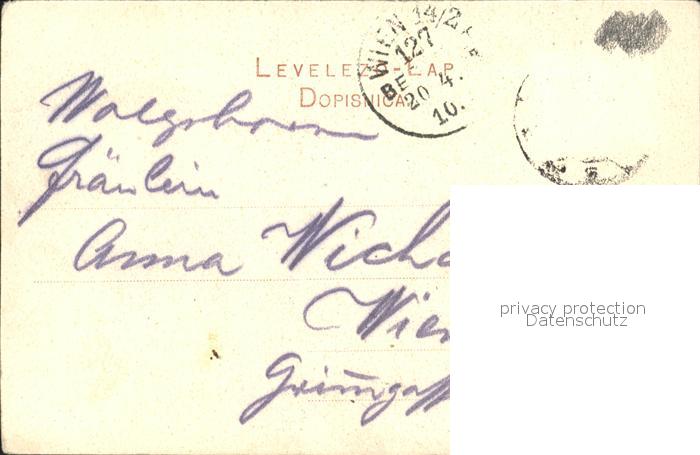 LEVELEZŐ-LAP
DOPISNICA
WIEN 14/2
127
BE
20 4.
10.
Wolgeborn
Fräulein
Anna Wich
Wien
Grimmgass
privacy protection
Datenschutz